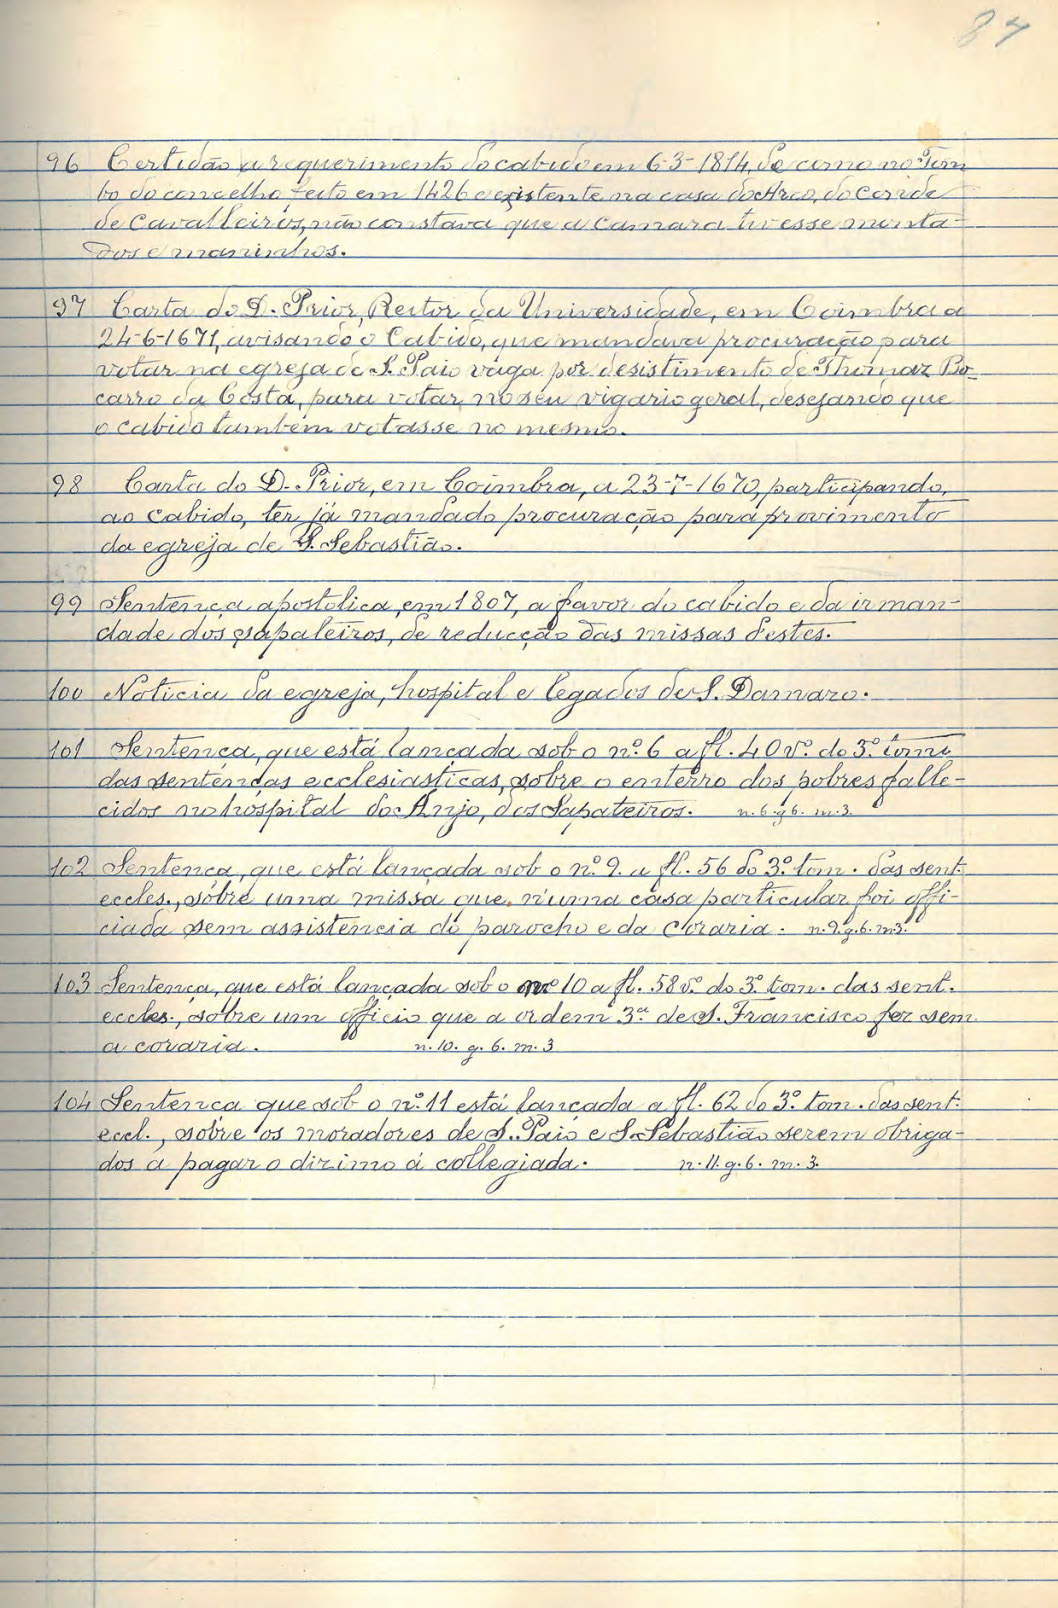 87
96 Certidão a requerimento do cabido em 6-3-1814, de como no Tom
bo do concelho feito em 1426 e existente na casa do Arco, do Conde
de Cavalleiros, não constava que a camara tivesse monta-
dos e maninhos.
97 Carta do D. Prior, Reitor da Universidade, em Coimbra a
24-6-1671, avisando o Cabido, que mandava procuração para
votar na egreja de S. Paio vaga por desistimento de Thomaz Bo-
carro da Costa, para votar no seu vigario geral, desejando que
o cabido também votasse no mesmo.
98 Carta do D. Prior, em Coimbra, a 23-7-1670, participando,
ao cabido, ter já mandado procuração para provimento
da egreja de S. Sebastião.
99 Sentença apostolica, em 1807, a favor do cabido e da irman-
dade dos sapateiros, de reducção das missas destes.
100 Noticia da egreja, hospital e legados de S. Damazo.
101 Sentença, que está lançada sob o nº. 6 a fl. 40 vº. do 3º. tomo
das sentenças ecclesiasticas, sobre o enterro dos pobres falle-
cidos no hospital do Anjo, dos Sapateiros. n. 6. g. 6. m. 3.
102 Sentença, que está lançada sob o nº. 9. a fl. 56 do 3º. tom. das sent.
eccles., sobre uma missa que n'uma casa particular foi offi-
ciada sem assistencia do parocho e da coraria. n. 9. g. 6. m. 3.
103 Sentença, que está lançada sob o nº 10 a fl. 58 vº. do 3º. tom. das sent.
eccles., sobre um officio que a ordem 3ª de S. Francisco fez sem
a coraria. n. 10. g. 6. m. 3
104 Sentença que sob o nº. 11 está lançada a fl. 62 do 3º. tom. das sent.
eccl., sobre os moradores de S. Paio e S. Sebastião serem obriga-
dos a pagar o dizimo á collegiada. n. 11. g. 6. m. 3.